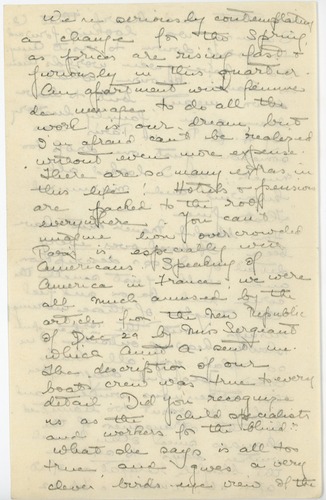 We're seriously contemplating
a change for the Spring
as prices are rising fast +
furiously in this quartier.
An apartment with femme
de menage to do all the
work is our dream but
I'm afraid can't be realized
without even more expense.
There are so many extras in
this life! Hotels + pensions
are packed to the roof
everywhere. You can't
imagine how overcrowded
Paris is, especially with
Americans. Speaking of
America in France we were
all much amused by the
article from the New Republic
of Dec 20 by Miss Sergeant
which Aunt A. sent me.
The description of our
boats crew was true to every
detail. Did you recognize
us as the "child specialists
and workers for the blind".
What she says is all too
true and gives a very
clever birds-eye view of the